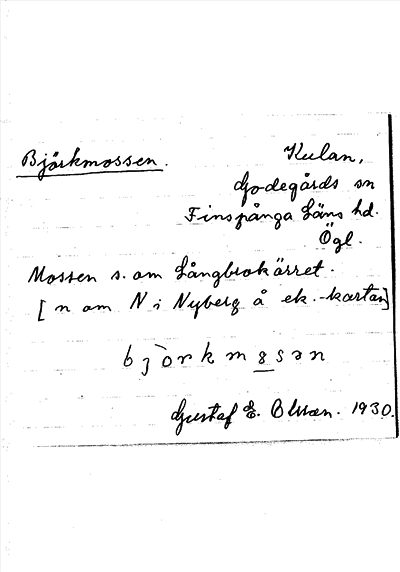 Björkmossen.
Kulan,
Godegårds sn
Finspånga läns hd.
Ögl.
Mossen s. om Långbrokärret.
[n om N i Nyberg å ek.-kartan]
bjòrkmꝏsən
Gustaf E. Olsson. 1930.